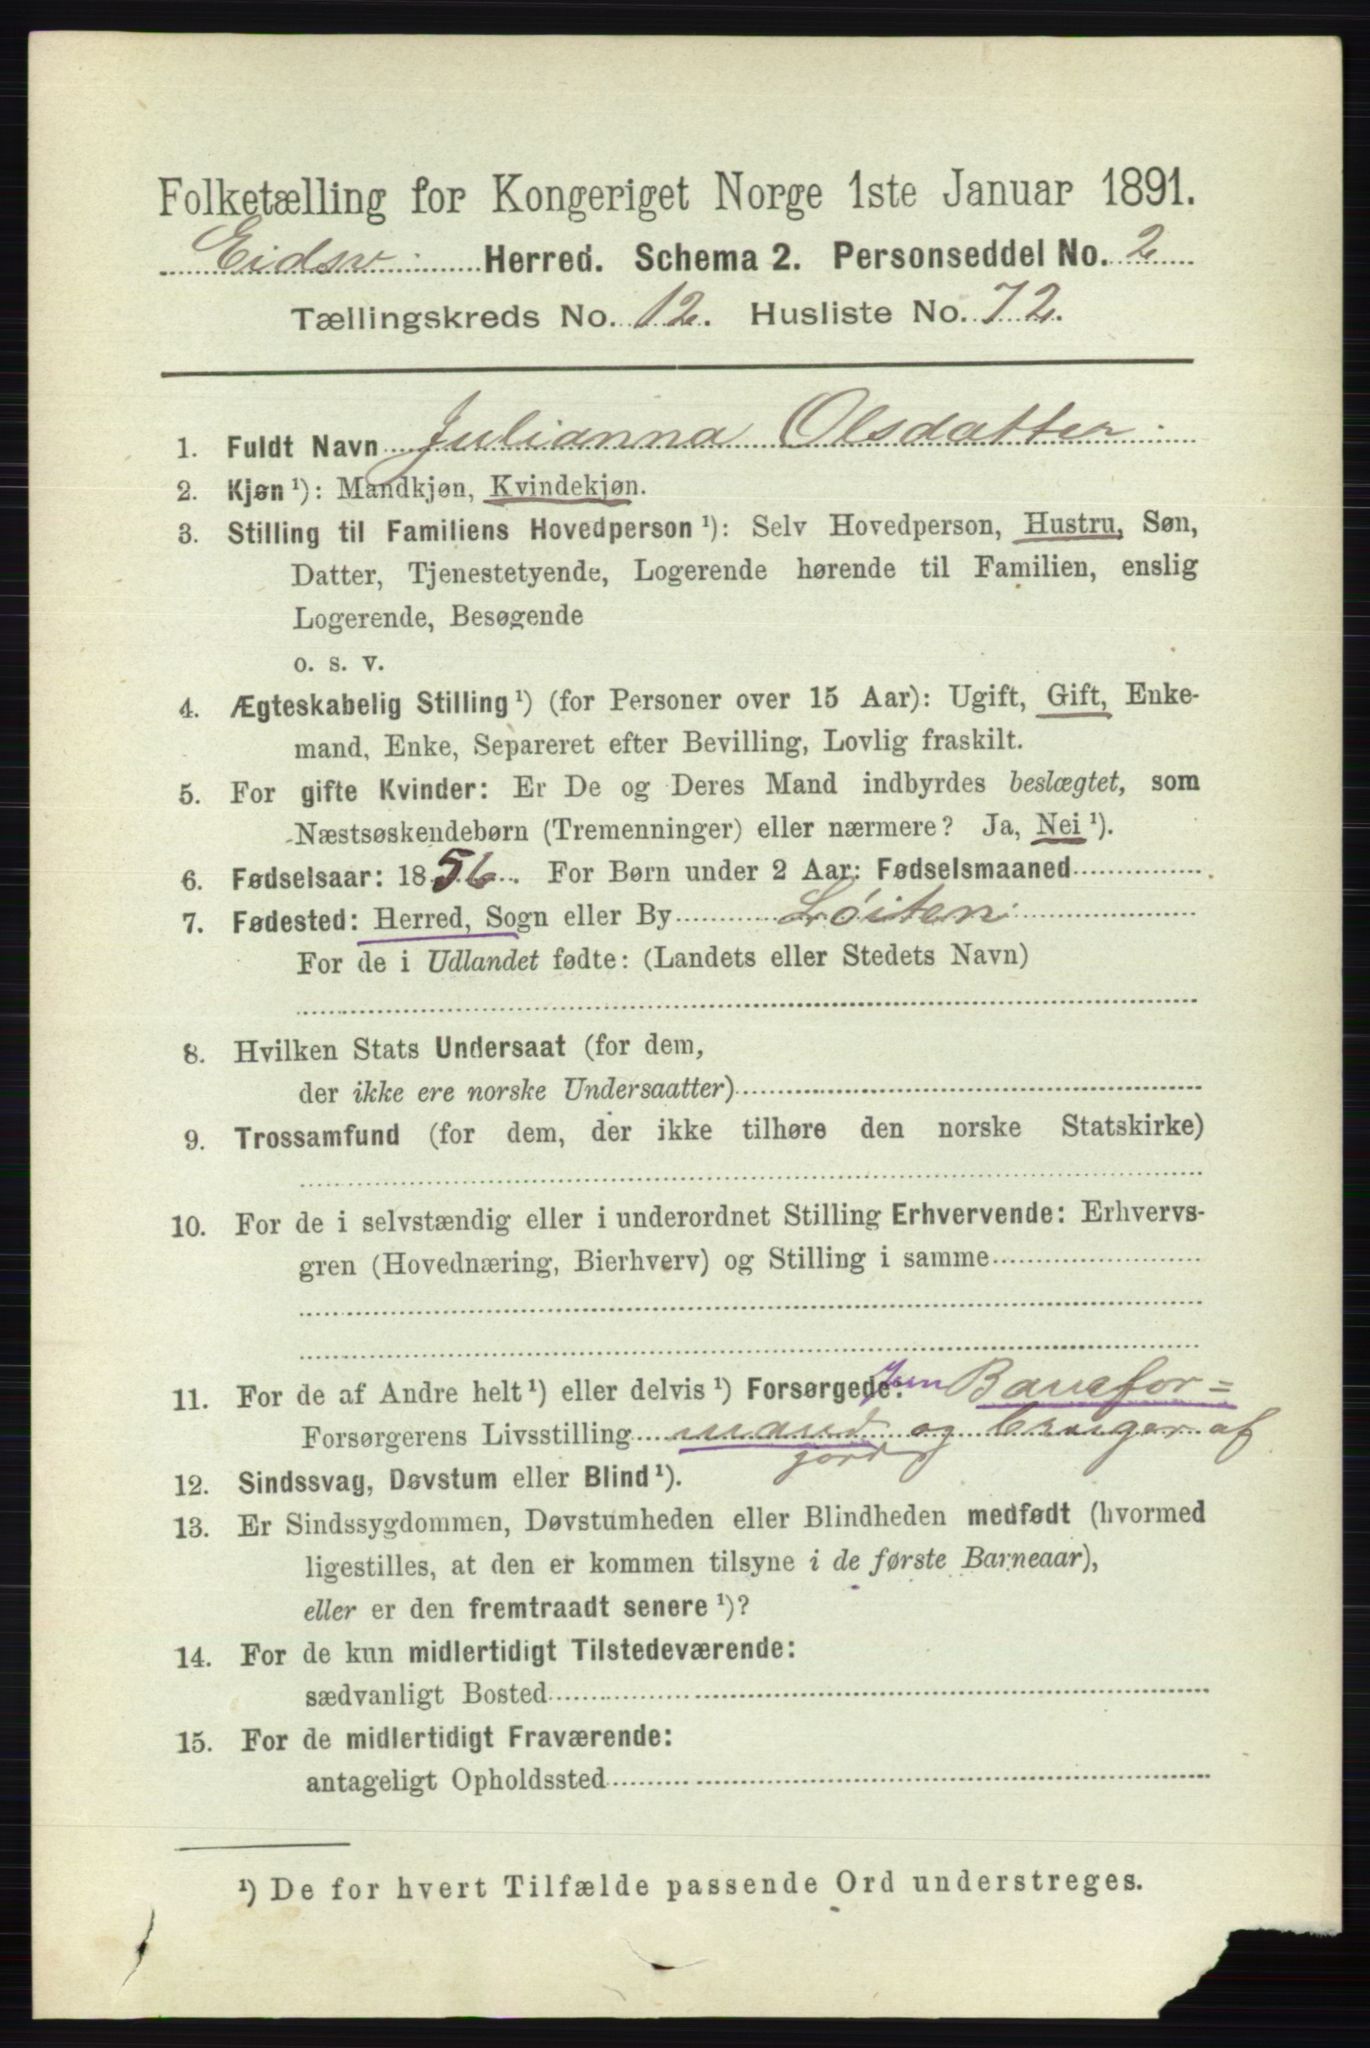 Folketælling for Kongeriget Norge 1ste Januar 1891.
Eidsv. Herred. Schema 2. Personseddel No. 2
Tællingskreds No. 12. Husliste No. 72.
1. Fuldt Navn Julianna Olsdatter
2. Kjøn ¹): Mandkjøn, Kvindekjøn.
3. Stilling til Familiens Hovedperson ¹): Selv Hovedperson, Hustru, Søn,
Datter, Tjenestetyende, Logerende hørende til Familien, enslig
Logerende, Besøgende
o. s. v.
4. Ægteskabelig Stilling ¹) (for Personer over 15 Aar): Ugift, Gift, Enke-
mand, Enke, Separeret efter Bevilling, Lovlig fraskilt.
5. For gifte Kvinder: Er De og Deres Mand indbyrdes beslægtet, som
Næstsøskendebørn (Tremenninger) eller nærmere? Ja, Nei ¹).
6. Fødselsaar: 1856. For Børn under 2 Aar: Fødselsmaaned
7. Fødested: Herred, Sogn eller By Løiten
For de i Udlandet fødte: (Landets eller Stedets Navn)
8. Hvilken Stats Undersaat (for dem,
der ikke ere norske Undersaatter)
9. Trossamfund (for dem, der ikke tilhøre den norske Statskirke)
10. For de i selvstændig eller i underordnet Stilling Erhvervende: Erhvervs-
gren (Hovednæring, Bierhverv) og Stilling i samme
11. For de af Andre helt ¹) eller delvis ¹) Forsørgede: Banefor=
Forsørgerens Livsstilling mand og bruger af
jord
12. Sindssvag, Døvstum eller Blind ¹).
13. Er Sindssygdommen, Døvstumheden eller Blindheden medfødt (hvormed
ligestilles, at den er kommen tilsyne i de første Barneaar),
eller er den fremtraadt senere ¹)?
14. For de kun midlertidigt Tilstedeværende:
sædvanligt Bosted
15. For de midlertidigt Fraværende:
antageligt Opholdssted
¹) De for hvert Tilfælde passende Ord understreges.